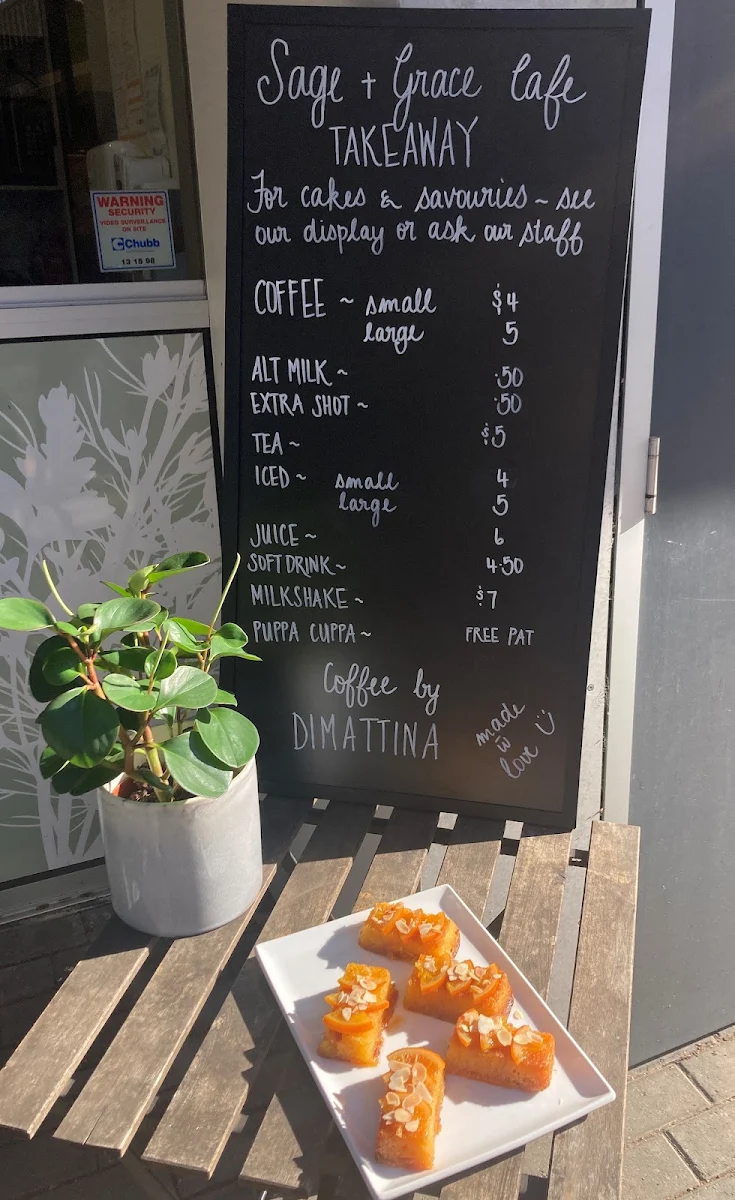 Sage + Grace Cafe
TAKEAWAY
For cakes & savouries ~ see
our display or ask our staff
COFFEE ~ small $4
large 5
ALT MILK ~ .50
EXTRA SHOT ~ .50
TEA ~ $5
ICED ~ small 4
large 5
JUICE ~ 6
SOFT DRINK ~ 4.50
MILKSHAKE ~ $7
PUPPA CUPPA ~ FREE PAT
Coffee by
DIMATTINA
made
w
love
WARNING
SECURITY
VIDEO SURVEILLANCE
ON SITE
Chubb
13 15 98